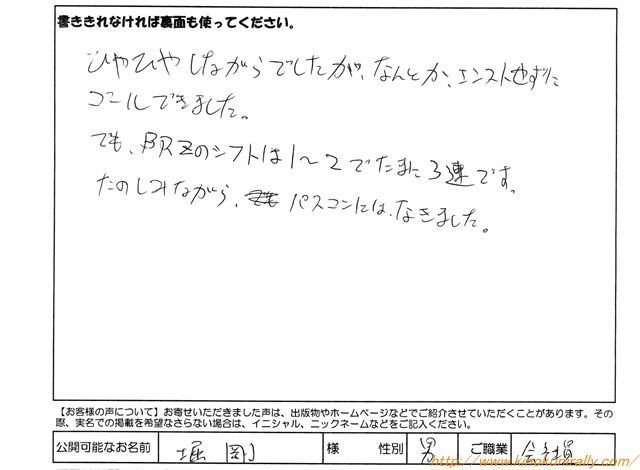 書ききれなければ裏面も使ってください。
ひやひやしながらでしたが、なんとか、エンストせずに
ゴールできました。
でも、BRZのシフトは1～2でたまに3速です。
たのしみながら、パスコンには、なきました。
【お客様の声について】お寄せいただきました声は、出版物やホームページなどでご紹介させていただくことがあります。その
際、実名での掲載を希望なさらない場合は、イニシャル、ニックネームなどをご記入ください。
公開可能なお名前 堀 剛 様 性別 男 ご職業 会社員